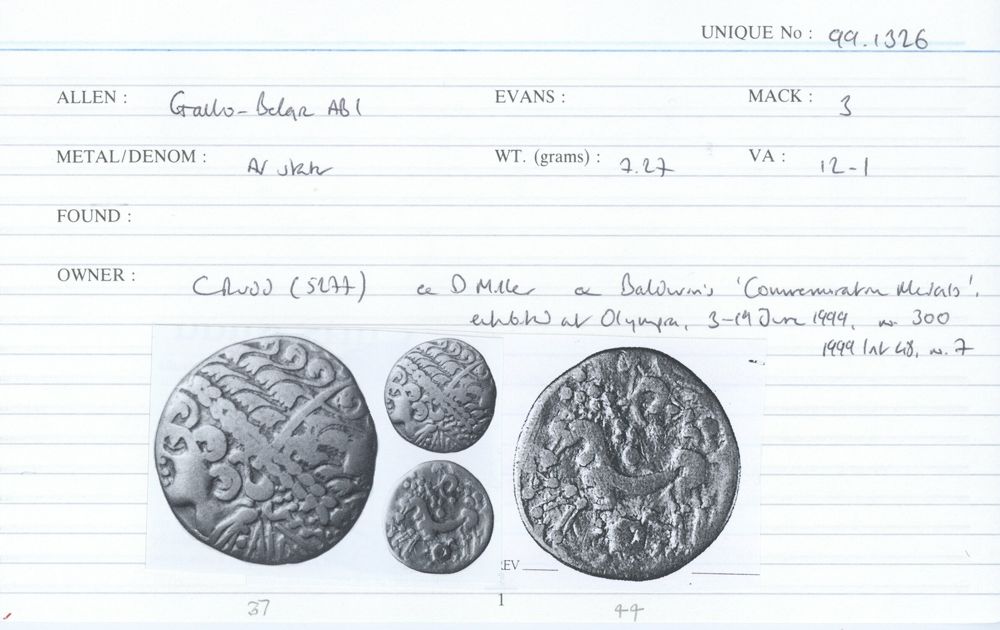 UNIQUE No : 99.1326
ALLEN : Gallo-Belgic AB1 EVANS : MACK : 3
METAL/DENOM : AV stater WT. (grams) : 7.27 VA : 12-1
FOUND :
OWNER : C Rudd (5277) ex D Miller ex Baldwin's 'Commemorative Medals',
exhibited at Olympia, 3-19 June 1999, no. 300
1999 list 48, no. 7
REV
1
37 44